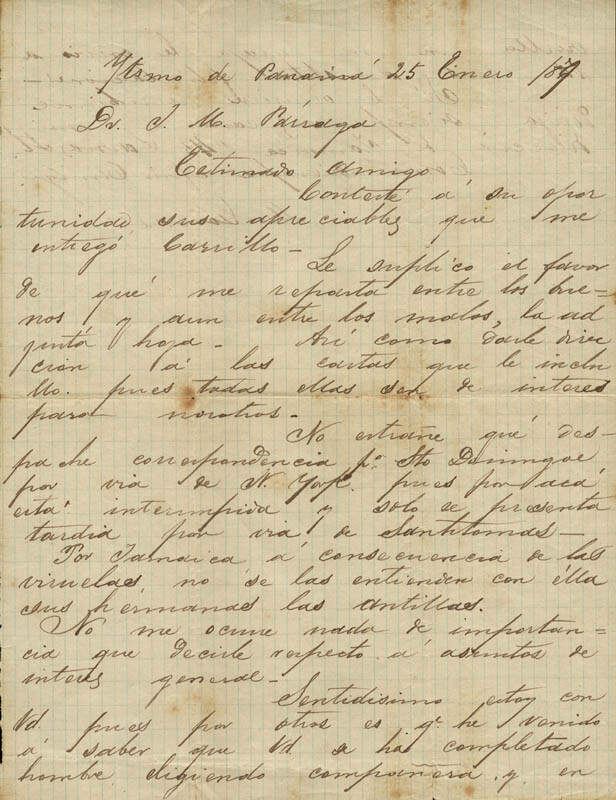 Ytsmo de Panamá 25 Enero /87
Dr. J. M. Párraga
Estimado amigo
Contesté á su opor
tunidad sus apreciables que me
entregó Carrillo_
Le suplico el favor
de qué me reparta entre los bue-
nos y aun entre los malos, la ad
junta hoja_ Asi como darle direc
cion á las cartas que le inclu
llo. pues todas ellas son de interes
para nosotros_
No estrañe qué des-
pache correspondencia pª. Sto Domingo
por via de N. York. pues por acá
está interrumpida y solo se presenta
tardia por via de Santhomas_
Por Jamaica á consecuencia de las
viruelas no se las entienden con élla
sus hermanas las antillas.
No me ocurre nada de importan-
cia que decirle respecto á asuntos de
interes general_
Sentidisimo estoy con
Vd. pues por otros es q. he venido
á saber que Vd se há completado
hombre eligiendo compañera. y en